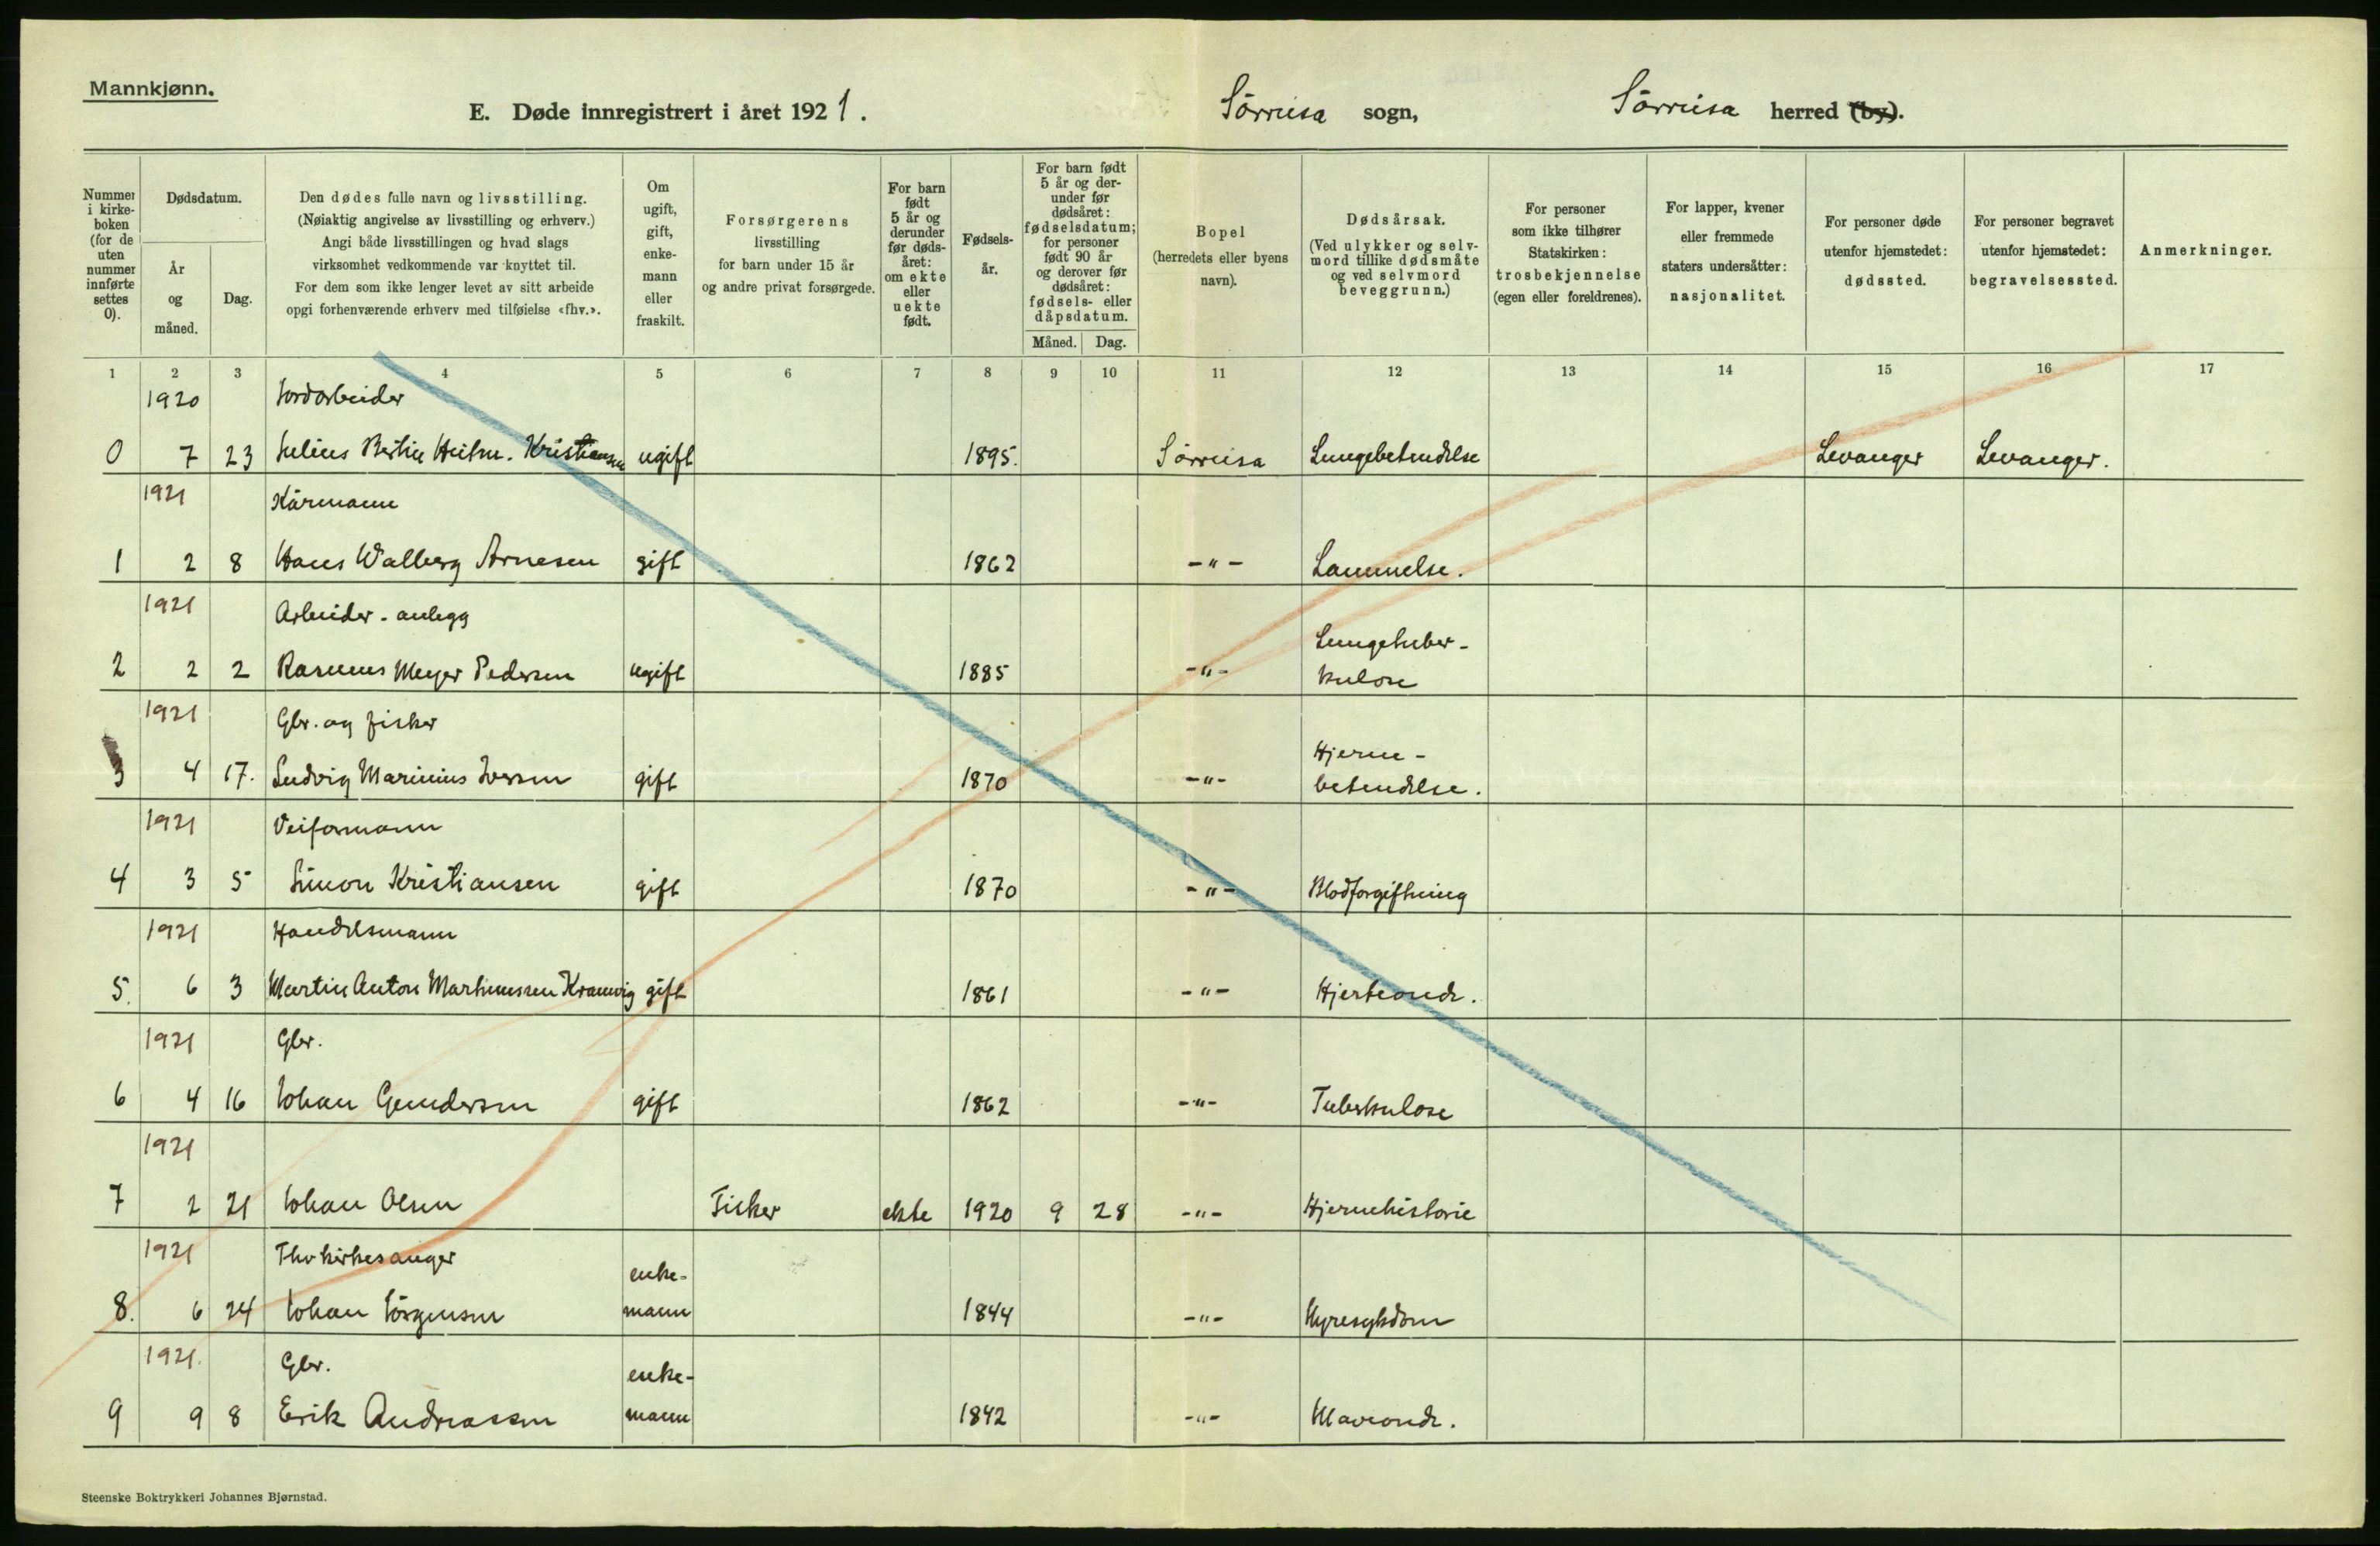 Mannkjønn.
E. Døde innregistrert i året 1921. Sörreisa sogn, Sörreisa herred (by).
Nummer i kirke-boken (for de uten nummer innførte settes 0).
Dødsdatum.
År og måned.
Dag.
Den dødes fulle navn og livsstilling.
(Nøiaktig angivelse av livsstilling og erhverv.)
Angi både livsstillingen og hvad slags
virksomhet vedkommende var knyttet til.
For dem som ikke lenger levet av sitt arbeide
opgi forhenværende erhverv med tilføielse «fhv.».
Om ugift, gift, enke-mann eller fraskilt.
Forsørgerens
livsstilling
for barn under 15 år
og andre privat forsørgede.
For barn født 5 år og derunder før døds-året: om ekte eller uekte født.
Fødsels-år.
For barn født 5 år og der-under før dødsåret: fødselsdatum; for personer født 90 år og derover før dødsåret: fødsels- eller dåpsdatum.
Måned. Dag.
Bopel
(herredets eller byens
navn).
Dødsårsak.
(Ved ulykker og selv-
mord tillike dødsmåte
og ved selvmord
beveggrunn.)
For personer
som ikke tilhører
Statskirken:
trosbekjennelse
(egen eller foreldrenes).
For lapper, kvener
eller fremmede
staters undersåtter:
nasjonalitet.
For personer døde
utenfor hjemstedet:
dødssted.
For personer begravet
utenfor hjemstedet:
begravelsessted.
Anmerkninger.
1 2 3 4 5 6 7 8 9 10 11 12 13 14 15 16 17
1920 Jordarbeider
0 7 23 Julius Bertin Kristiansen ugift 1895. Sörreisa Lungebetendelse Levanger Levanger.
1921 Kårmann
1 2 8 Hans Walberg Arnesen gift 1862 -"- Lammelse.
1921 Arbeider - anlegg
Lungetuber-
2 2 2 Rasmus Meyer Pedersen ugift 1885 -"- kulose
1921 Gbr. og fisker
Hjerne-
3 4 17. Ludvig Marinius Iversen gift 1870 -"- betendelse.
1921 Veiformann
4 3 5 Simon Kristiansen gift 1870 -"- Blodforgiftning
1921 Handelsmann
5. 6 3 Martin Anton Martinussen gift 1861 -"- Hjerteonde.
1921 Gbr.
6 4 16 Johan Gundersen gift 1862 -"- Tuberkulose
1921
7 2 21 Johan Olsen Fisker ekte 1920 9 28 -"- Hjernehistorie
1921 Fhv kirkesanger enke-
8. 6 24 Johan Jörgensen mann 1844 -"- Nyresykdom
1921. Gbr. enke-
9 9 8 Erik Andreassen mann 1842 -"- Maveonde.
Steenske Boktrykkeri Johannes Bjørnstad.